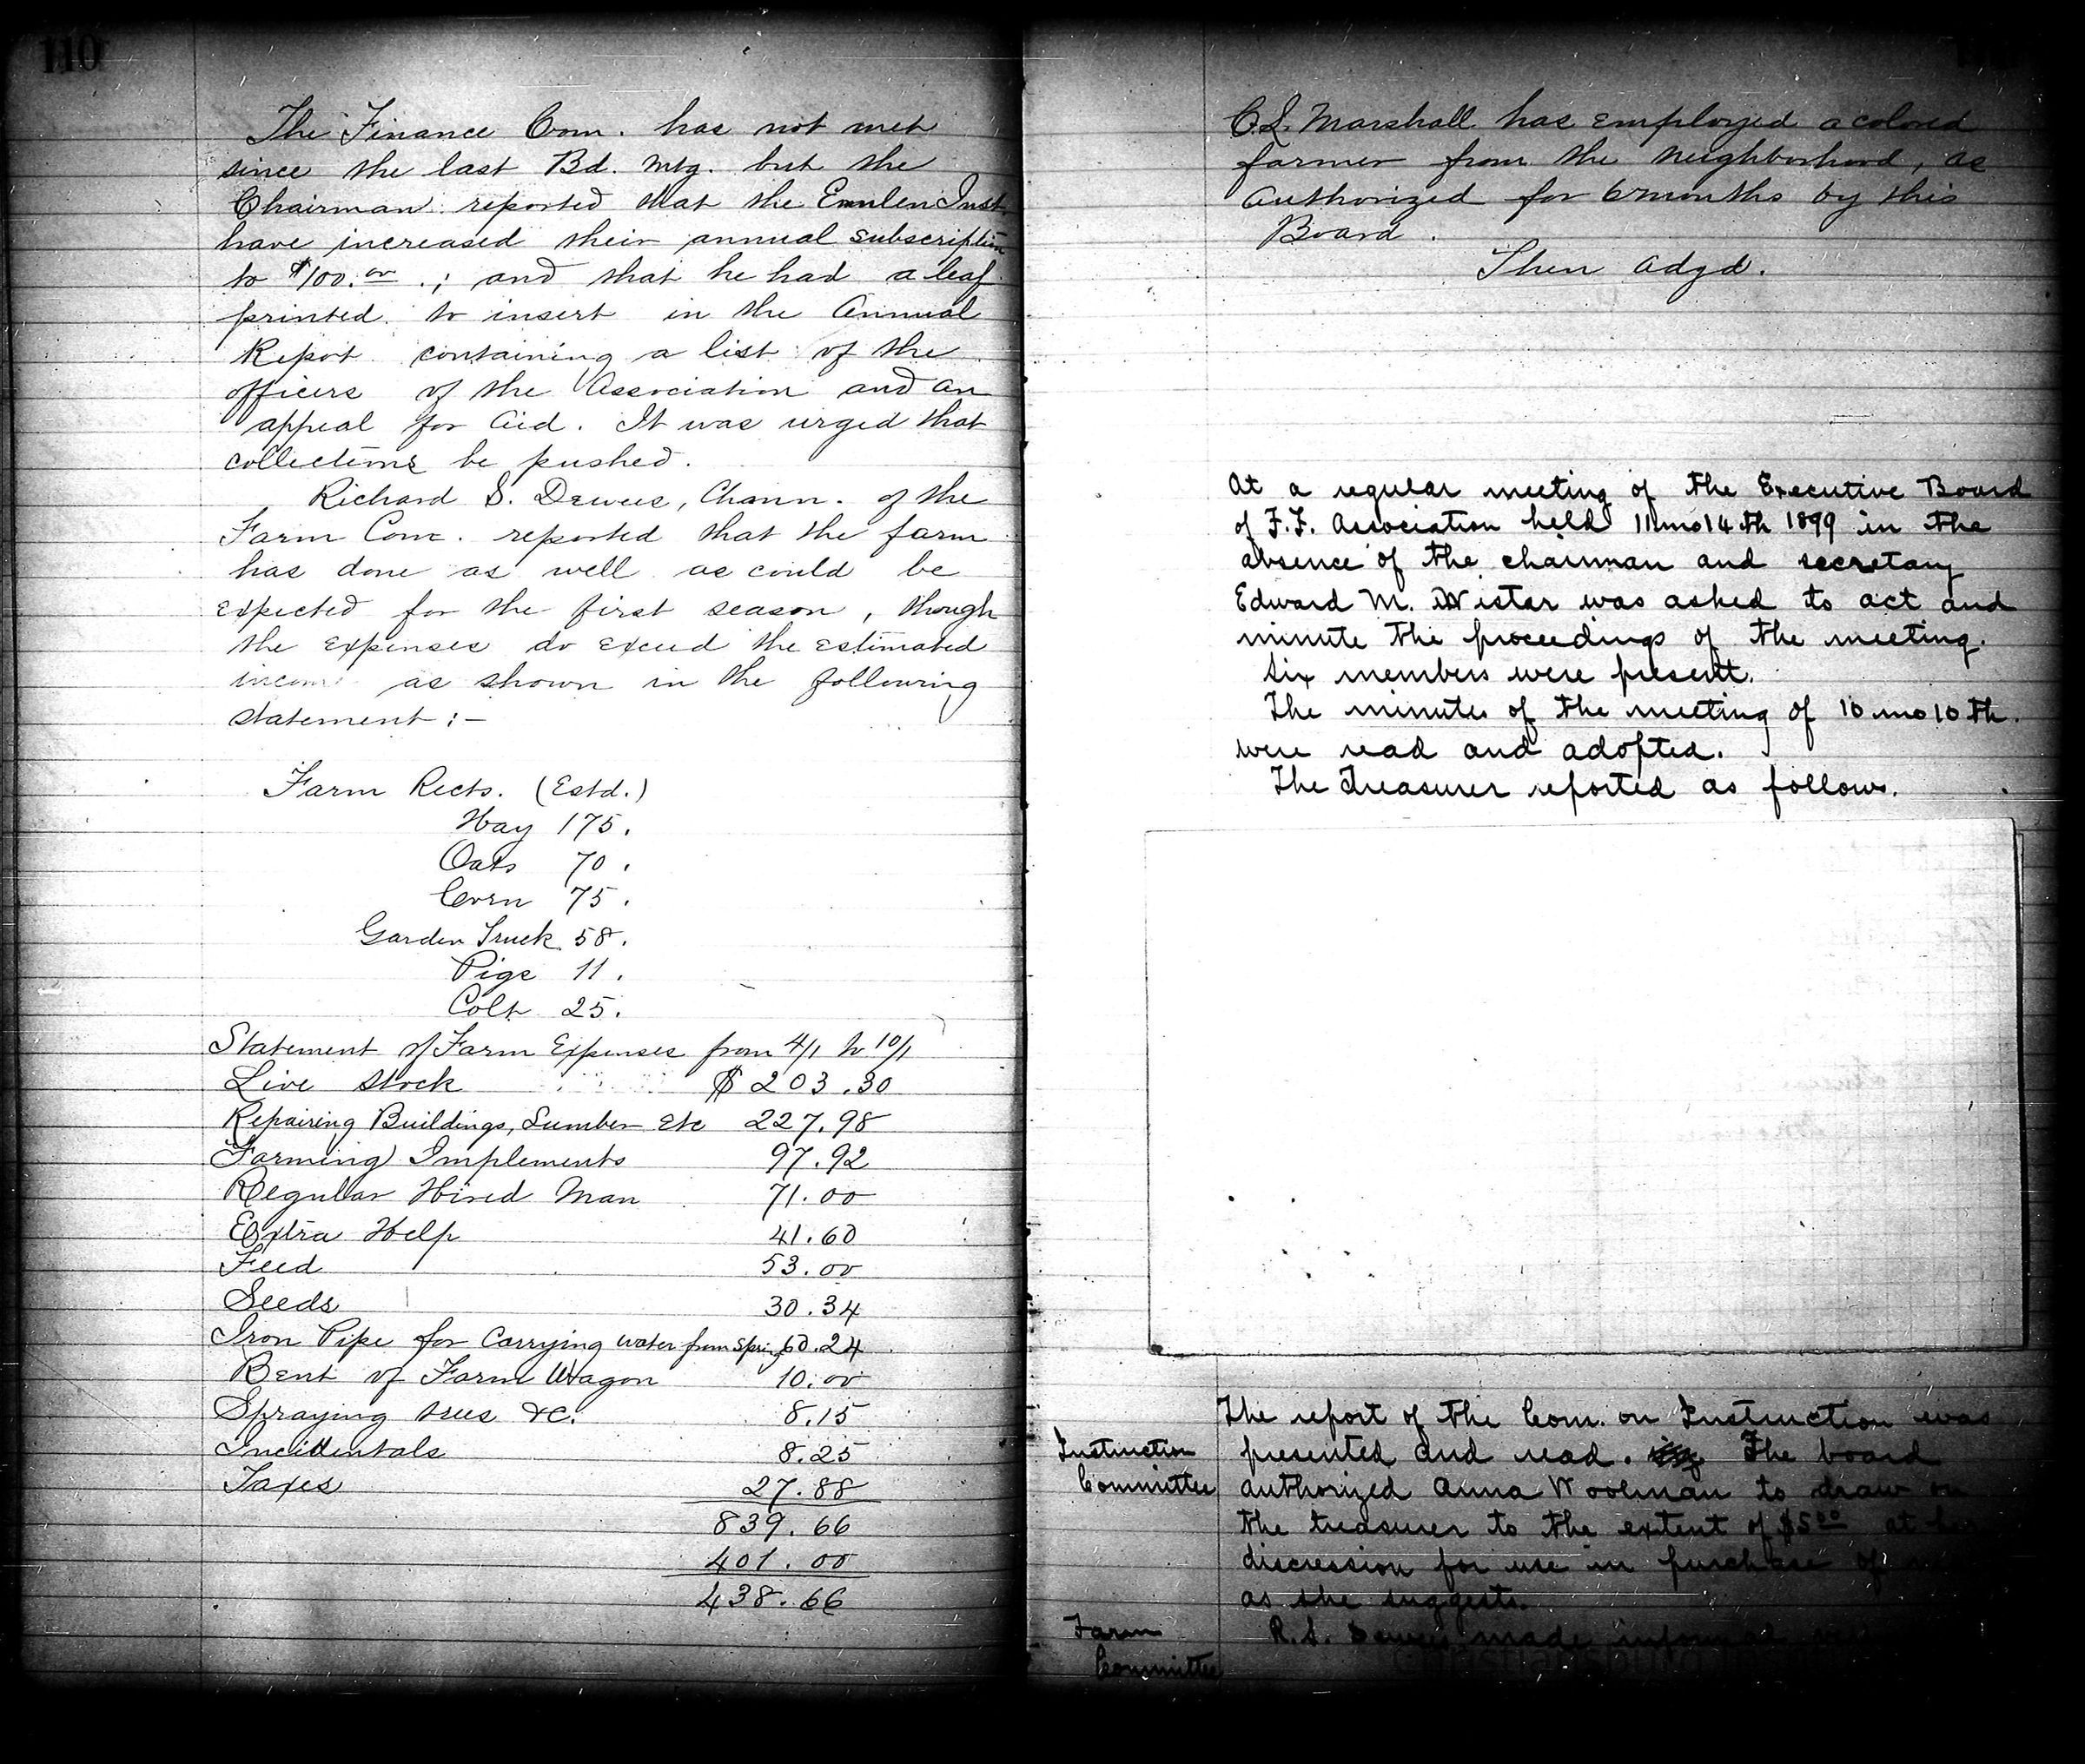 110
The Finance Com. has not met
since the last Bd. Mtg. but the
Chairman reported that the Emlen Inst.
have increased their annual subscription
to $100.00 .; and that he had a leaf
printed to insert in the Annual
Report containing a list of the
officers of the Association and an
appeal for aid. It was urged that
collections be pushed.
Richard S. Dewees, Chmn. of the
Farm Com. reported that the farm
has done as well as could be
expected for the first season, though
the expenses do exceed the estimated
income as shown in the following
statement :-
Farm Rects. (Estd.)
Hay 175.
Oats 70.
Corn 75.
Garden Truck 58.
Pigs 11.
Colt 25.
Statement of Farm Expenses from 4/1 to 10/1
Live Stock $ 203.30
Repairing Buildings, Lumber Etc 227.98
Farming Implements 97.92
Regular Hired Man 71.00
Extra Help 41.60
Feed 53.00
Seeds 30.34
Iron Pipe for Carrying water from Spring 60.24
Rent of Farm Wagon 10.00
Spraying trees &c. 8.15
Incidentals 8.25
Taxes 27.88
839.66
401.00
438.66
C.L. Marshall has employed a colored
farmer from the neighborhood, as
authorized for 6 months by this
Board.
Then adjd.
At a regular meeting of the Executive Board
of F.F. Association held 11mo14th 1899 in the
absence of the chairman and secretary
Edward M. Wistar was asked to act and
minute the proceedings of the meeting.
Six members were present.
The minutes of the meeting of 10 mo 10 th.
were read and adopted.
The Treasurer reported as follows.
The report of the Com. on Instruction was
Instruction Committee
presented and read. The board
authorized Anna Woolman to draw on
the treasurer to the extent of $5.00 at her
discression for use in purchase of
as she suggests.
Farm Committee
R.S. Dewees made informal
Christiansburg